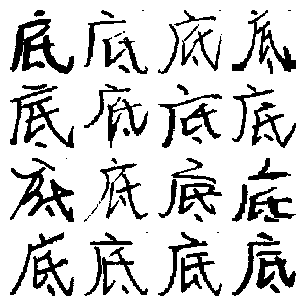 底底底底
底底底底
底底底底
底底底底